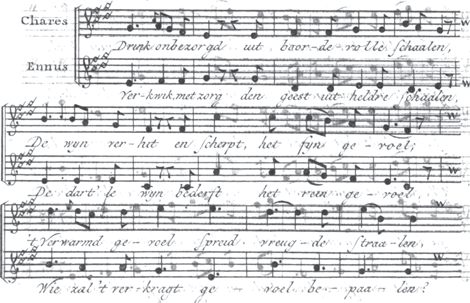 Chares
Drink onbezorgd uit boor-de volle schaalen,
Ennus
Ver-kwik, met zorg den geest uit heldre schaalen,
De wyn ver-hit en scherpt, het fyn ge-voel;
De dart'le wyn bederft het reen ge-voel
't Verwarmd ge-voel spreid vreug-de straa-len,
Wie zal 't ver-kragt ge-voel be-paa-len?